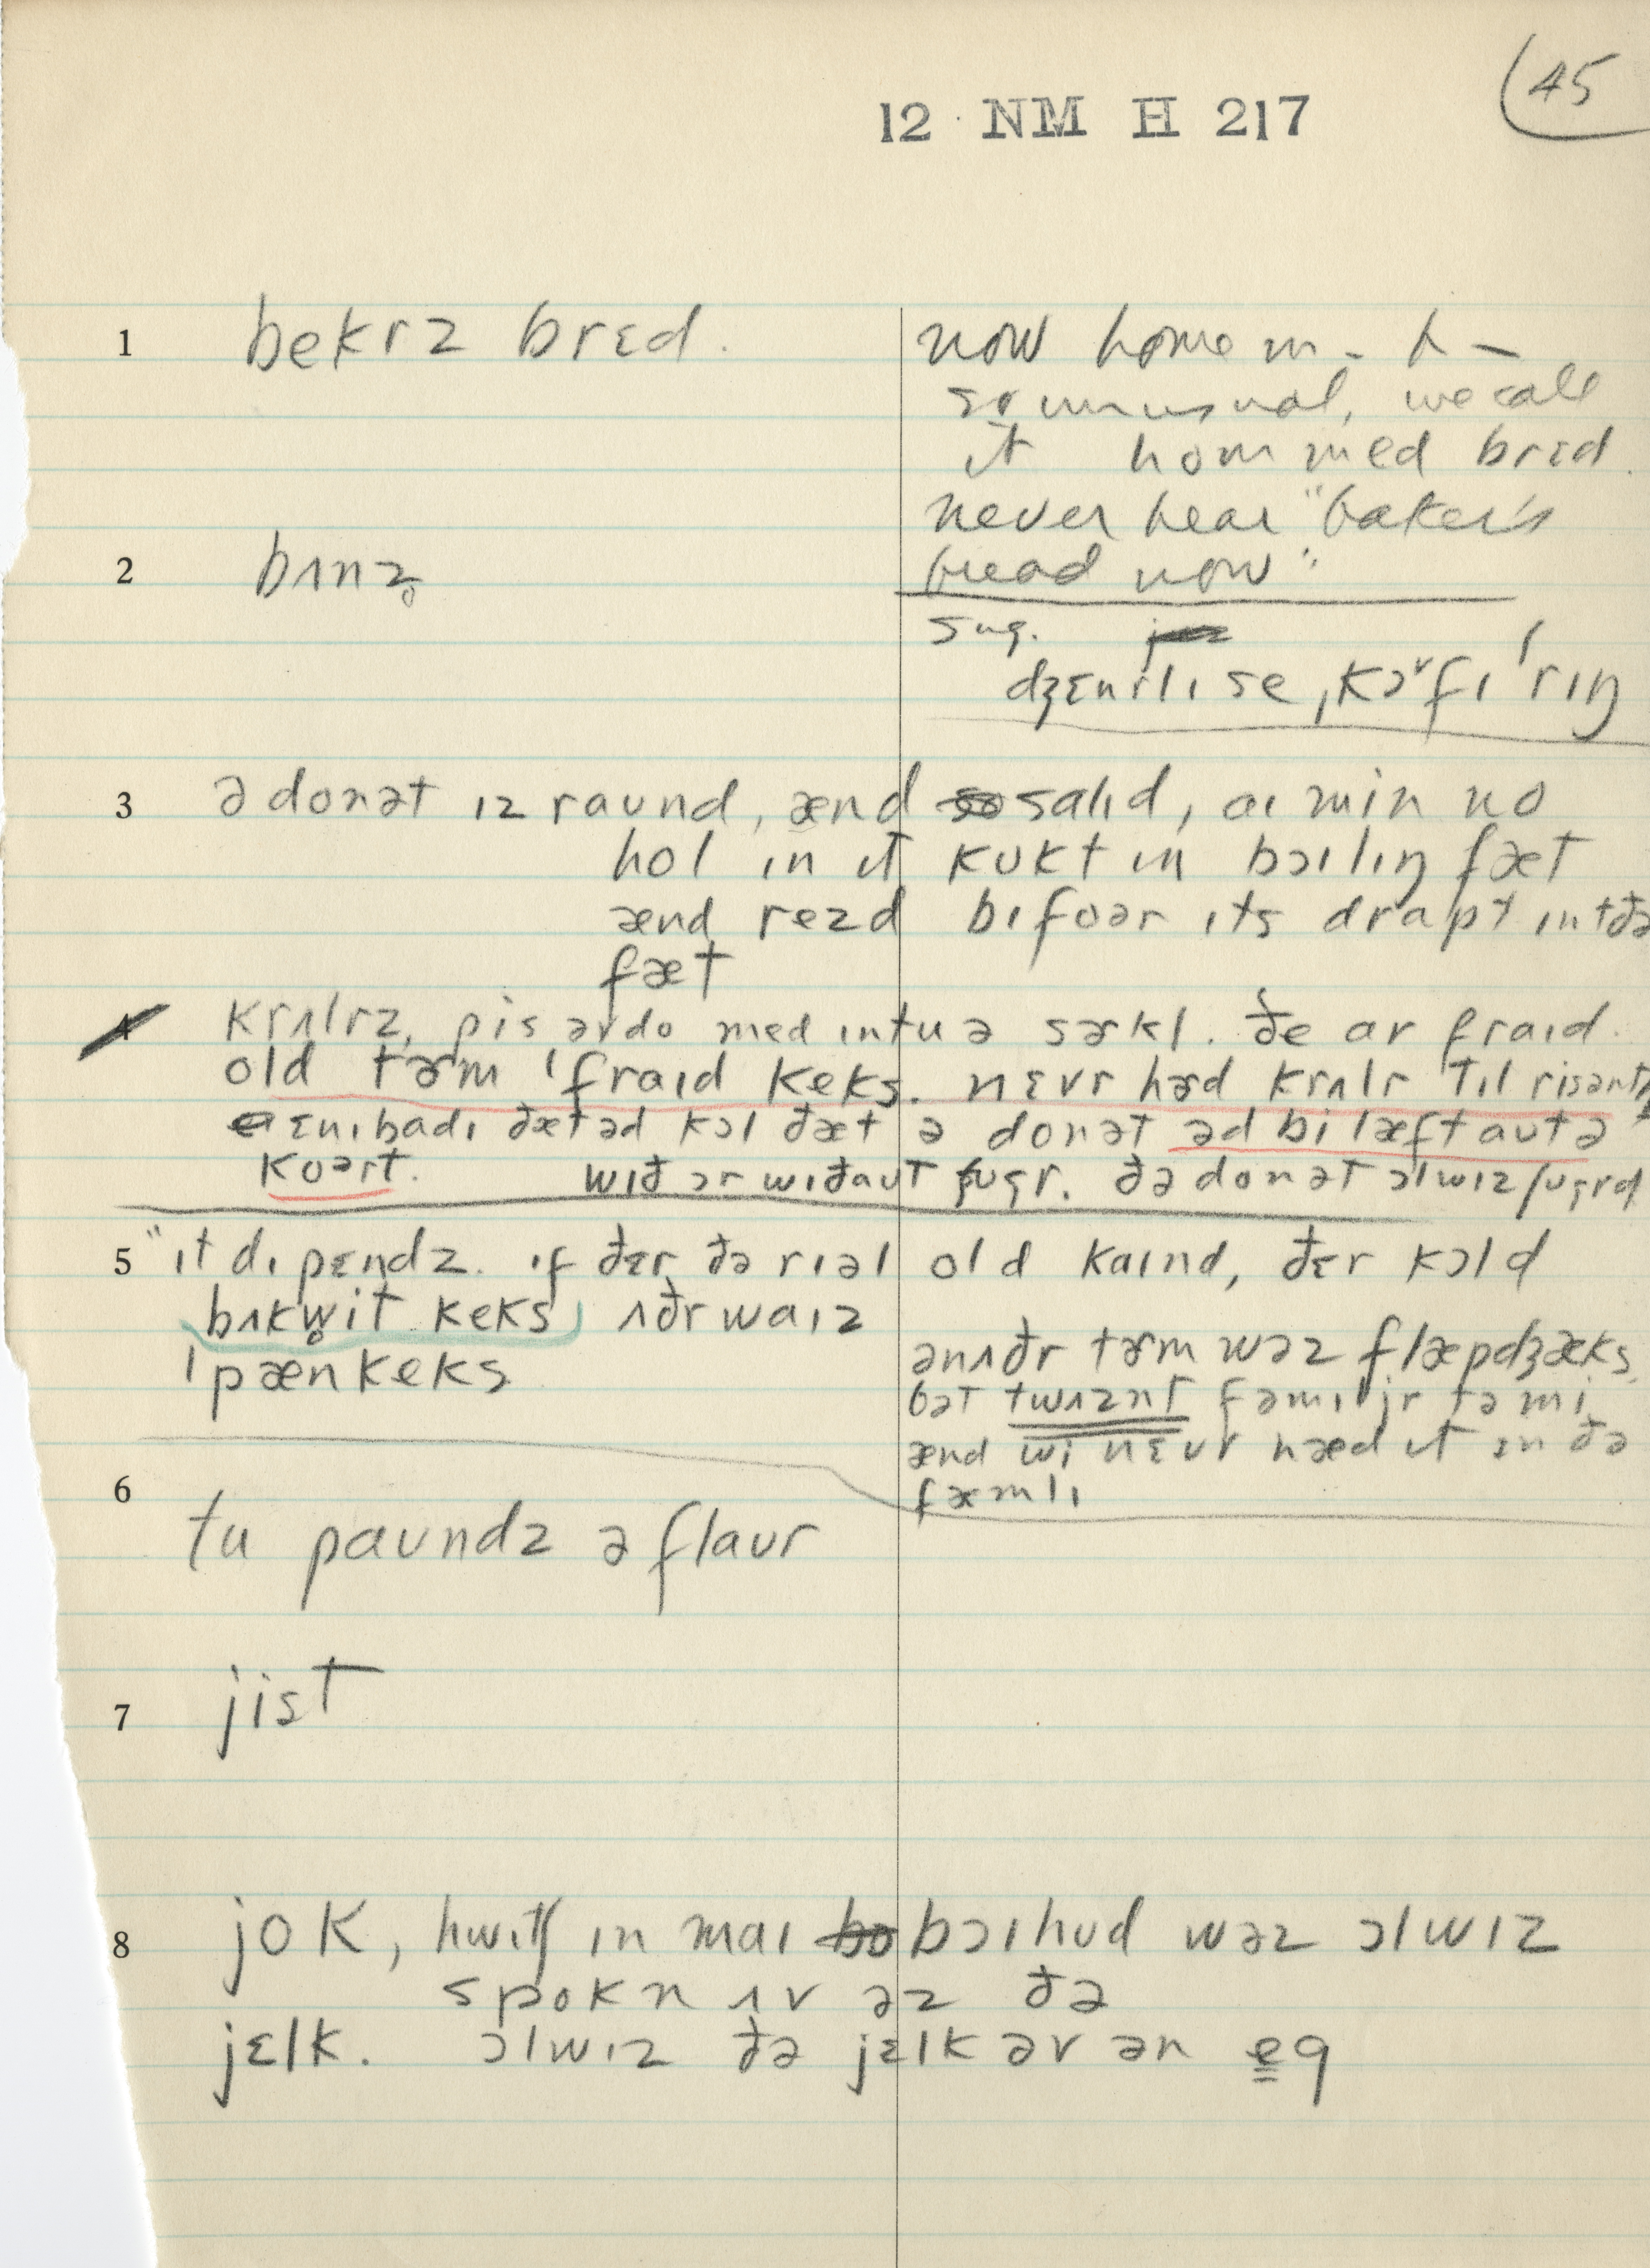 45
12 NM H 217
1 bekrz brɛd.
now home m - b -
so unusual, we call
it hommed brɛd.
never hear "baker's
bread now".
2 bʌnz̥
sug.
dʒɛnrlɪ se ˌkɔfɪ ˈrɪŋ
3 ə donət ɪz raʊnd, ænd salɪd, aɪ min no
hol ɪn ɪt kʊkt ɪn bɔɪlɪŋ fæt
ænd rezd bɪfoər ɪts drapt ɪntðə
fæt
4 krʌlrz, pis əv do med ɪntu ə sɚkl. ðe ar fraɪd.
old tɚm ˈfraɪd keks. nɛvr hɚd krʌlr tɪl
ɛnɪbadɪ ðæt əd kɔl ðæt ə donət əd bi læft aʊt ə
koərt. wɪð ɔr wɪðaʊt ʃʊgr. ðə donət ɔlwɪz ʃʊgrd
5 "ɪt dɪpɛndz. ɪf ðɛr ðə rɪəl old kaɪnd, ðɛr kɔld
bʌkw̥it keks ʌðrwaɪz
ˈpænkeks
ənʌðr tɚm wəz flæpdʒæks,
bət twʌznt fəmɪljr tə mi
ænd wi nɛvr hæd ɪt ɪn ðə
fæmlɪ
6
tu paʊndz ə flaʊr
7 jist
8 jok, hwɪtʃ ɪn maɪ bɔɪhʊd wəz ɔlwɪz
spokn ʌv əz ðə
jɛlk. ɔlwɪz ðə jɛlk əv ən eg